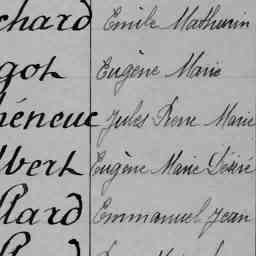 chard Emile Mathurin
got Eugène Marie
héneuc Jules Pierre Marie
lbert Eugène Marie Désiré
llard Emmanuel Jean